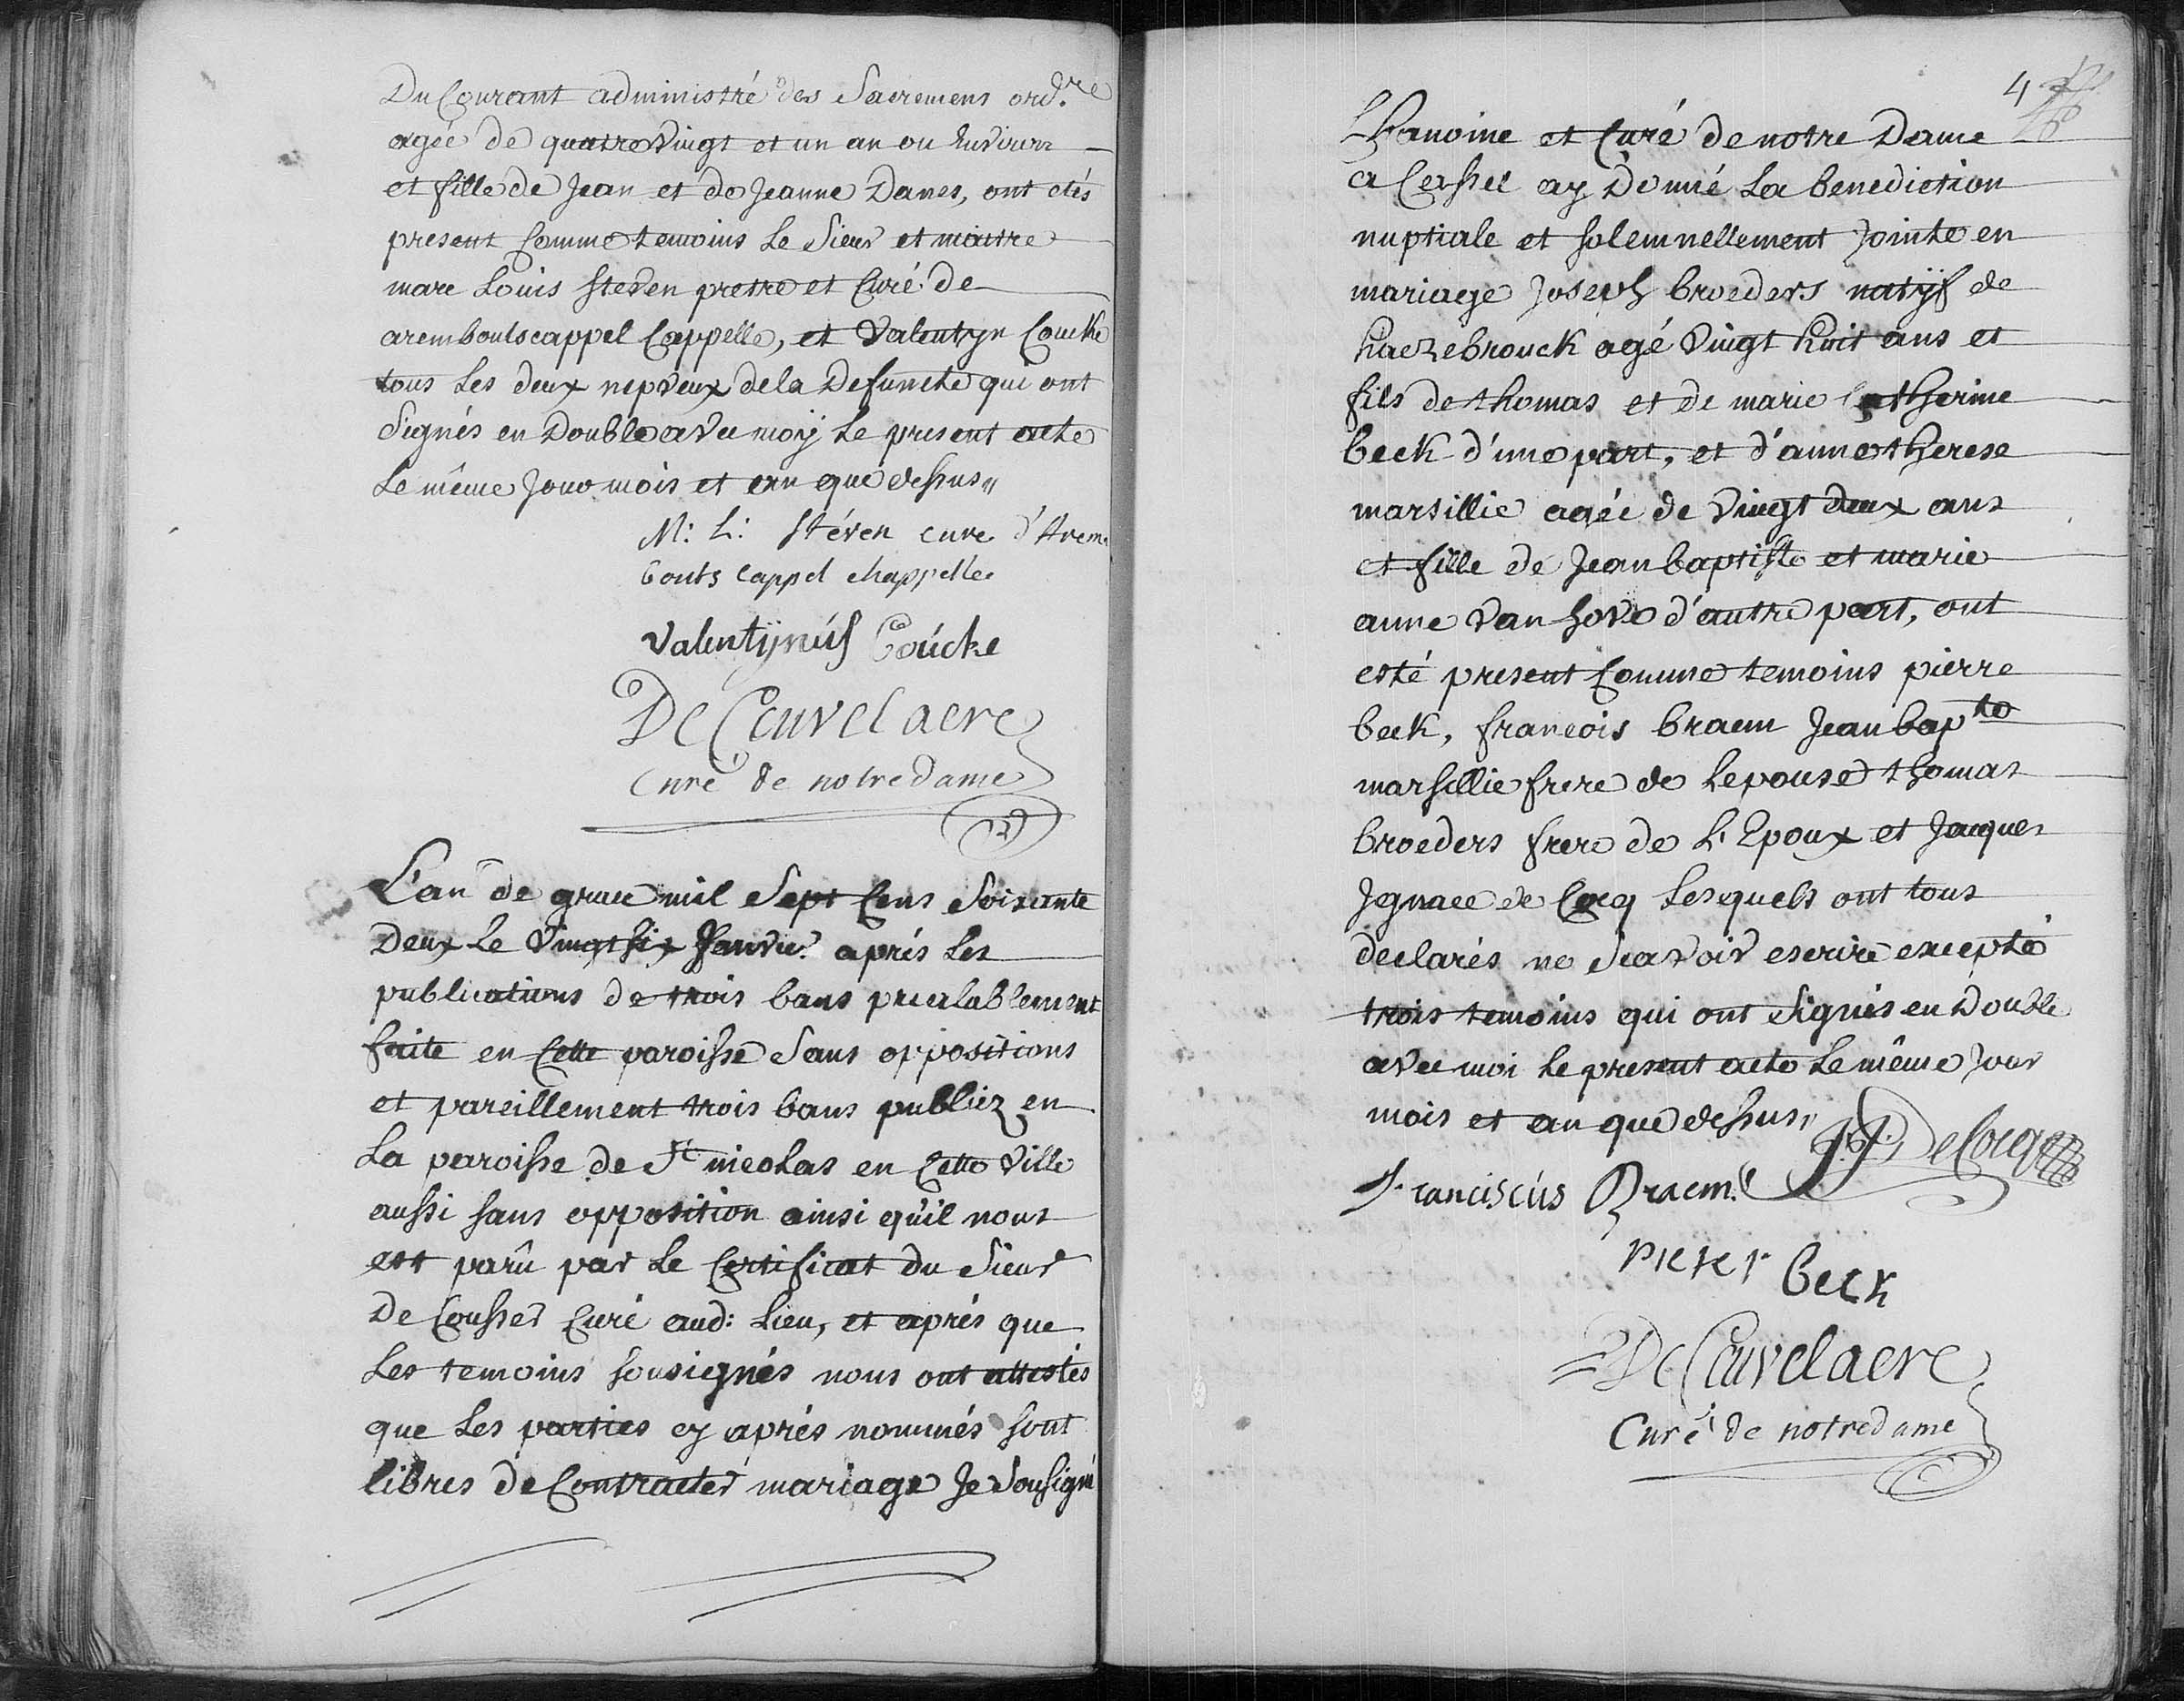 Du Courant administré des Sacremens ord.re
agée de quatre Vingt et un an ou Environ
et fille de Jean et de Jeanne Danes, ont etés
present Comme temoins Le Sieur et maitre
marc Louis steven pretre et Curé de
aremboutscappel Cappelle, et Valentyn Coucke
tous Les deux nepveux dela Defuncte qui ont
Signés en Double avec moÿ Le present acte
Le même Jour mois et an que dessus,,
M: L: stéven cure d'Arem
bouts cappel chappelle
Valentijnús Coúcke
De Ceuvelaere
Curé de notre dame
L'an de grace mil Sept Cens Soixante
Deux Le Vingt six Janvier après Les
publications de trois bans preealablement
faite en Cette paroisse Sans oppositions
et pareillement trois bans publiez en
La paroisse de St nicolas en Cette Ville
aussi sans opposition ainsi qu'il nous
est parû par Le Certificat Du Sieur
De Cousser Curé aud: Lieu, et aprés que
Les temoins sousignés nous ont attestés
que Les parties cy aprés nommés sont
libres de Contracter mariage Je Sousigné
4
Chanoine et Curé de notre Dame
a Cassel ay Donné La benediction
nuptiale et solemnellement Jointe en
mariage Joseph broeders natÿf de
haezebrouck agé Vingt huit ans et
fils de thomas et de marie Catherine
beck d'une part, et d'anne therese
marsillie agée de Vingt deux ans
et fille de Jean baptiste et marie
anne Van hove d'autre part, ont
esté present Comme temoins pierre
beck, francois braem Jean bapte
marsillie frere de Lepouse thomas
broeders frere de L'Epoux et Jacques
Jgnace de Cocq Lesquels ont tous
declarés ne Scavoir escrire excepté
trois temoins qui ont Signés en Double
avec moi Le present acte Le même Jour
mois et an que dessus,,
JJ DeCocq
Franciscús Braem
pieter beck
De Ceuvelaere
Curé de notre dame